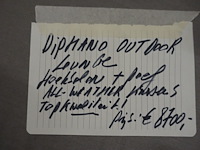 DiPMANO OUTDOOR
LOUNGE
Hoeksofan + Poef
ALL-WEATHER KUSSENS
TOPKwaliteit!
Prijs: € 8700,-